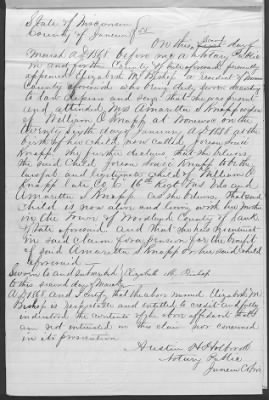 State of Wisconsin
County of Juneau } ss
On this second day
March A.D. 1868 before me a Notary Public
in and for the County of Juneau aforesaid personally
appeared Elizabeth M. Bishop a resident of Juneau
County aforesaid who being duly sworn according
to law deposes and says that she was present
and attended Mrs Amaretta S Knapp widow
of William O Knapp at Wonewoc on the
twenty sixth day of January A.D. 1868 at the
birth of her child, now called
Knapp She further declares that she believes
the said Child Knapp to be the
lawful and legitimate child of William O
Knapp late Co. 16th Regt Wis Vols and
Amaretta S Knapp. As she believes. That said
Child is now alive and living with her mother
in the Town of Woodland County of Sauk
State aforesaid. And that she has no interest
in said claim for a pension for the benefit
of said Amaretta S Knapp or her said child
aforesaid
Sworn to and Subscribed } Elizabeth M. Bishop
to this second day of March
A.D. 1868, And I certify that the above named Elizabeth M
Bishop is respectable and entitled to credit and fully
understood the contents of the above affidavit that I
am not interested in this claim nor concerned
in its prosecution
Notary Public
Juneau Co Wis